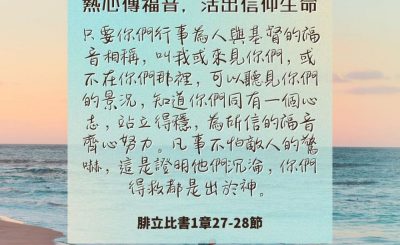 熱心傳福音，活出信仰生命
只要你們行事為人與基督的福
音相稱，叫我或來見你們，或
不在你們那裡，可以聽見你們
的景況，知道你們同有一個心
志，站立得穩，為所信的福音
齊心努力。凡事不怕敵人的驚
嚇，這是證明他們沉淪，你們
得救都是出於神。
腓立比書1章27-28節